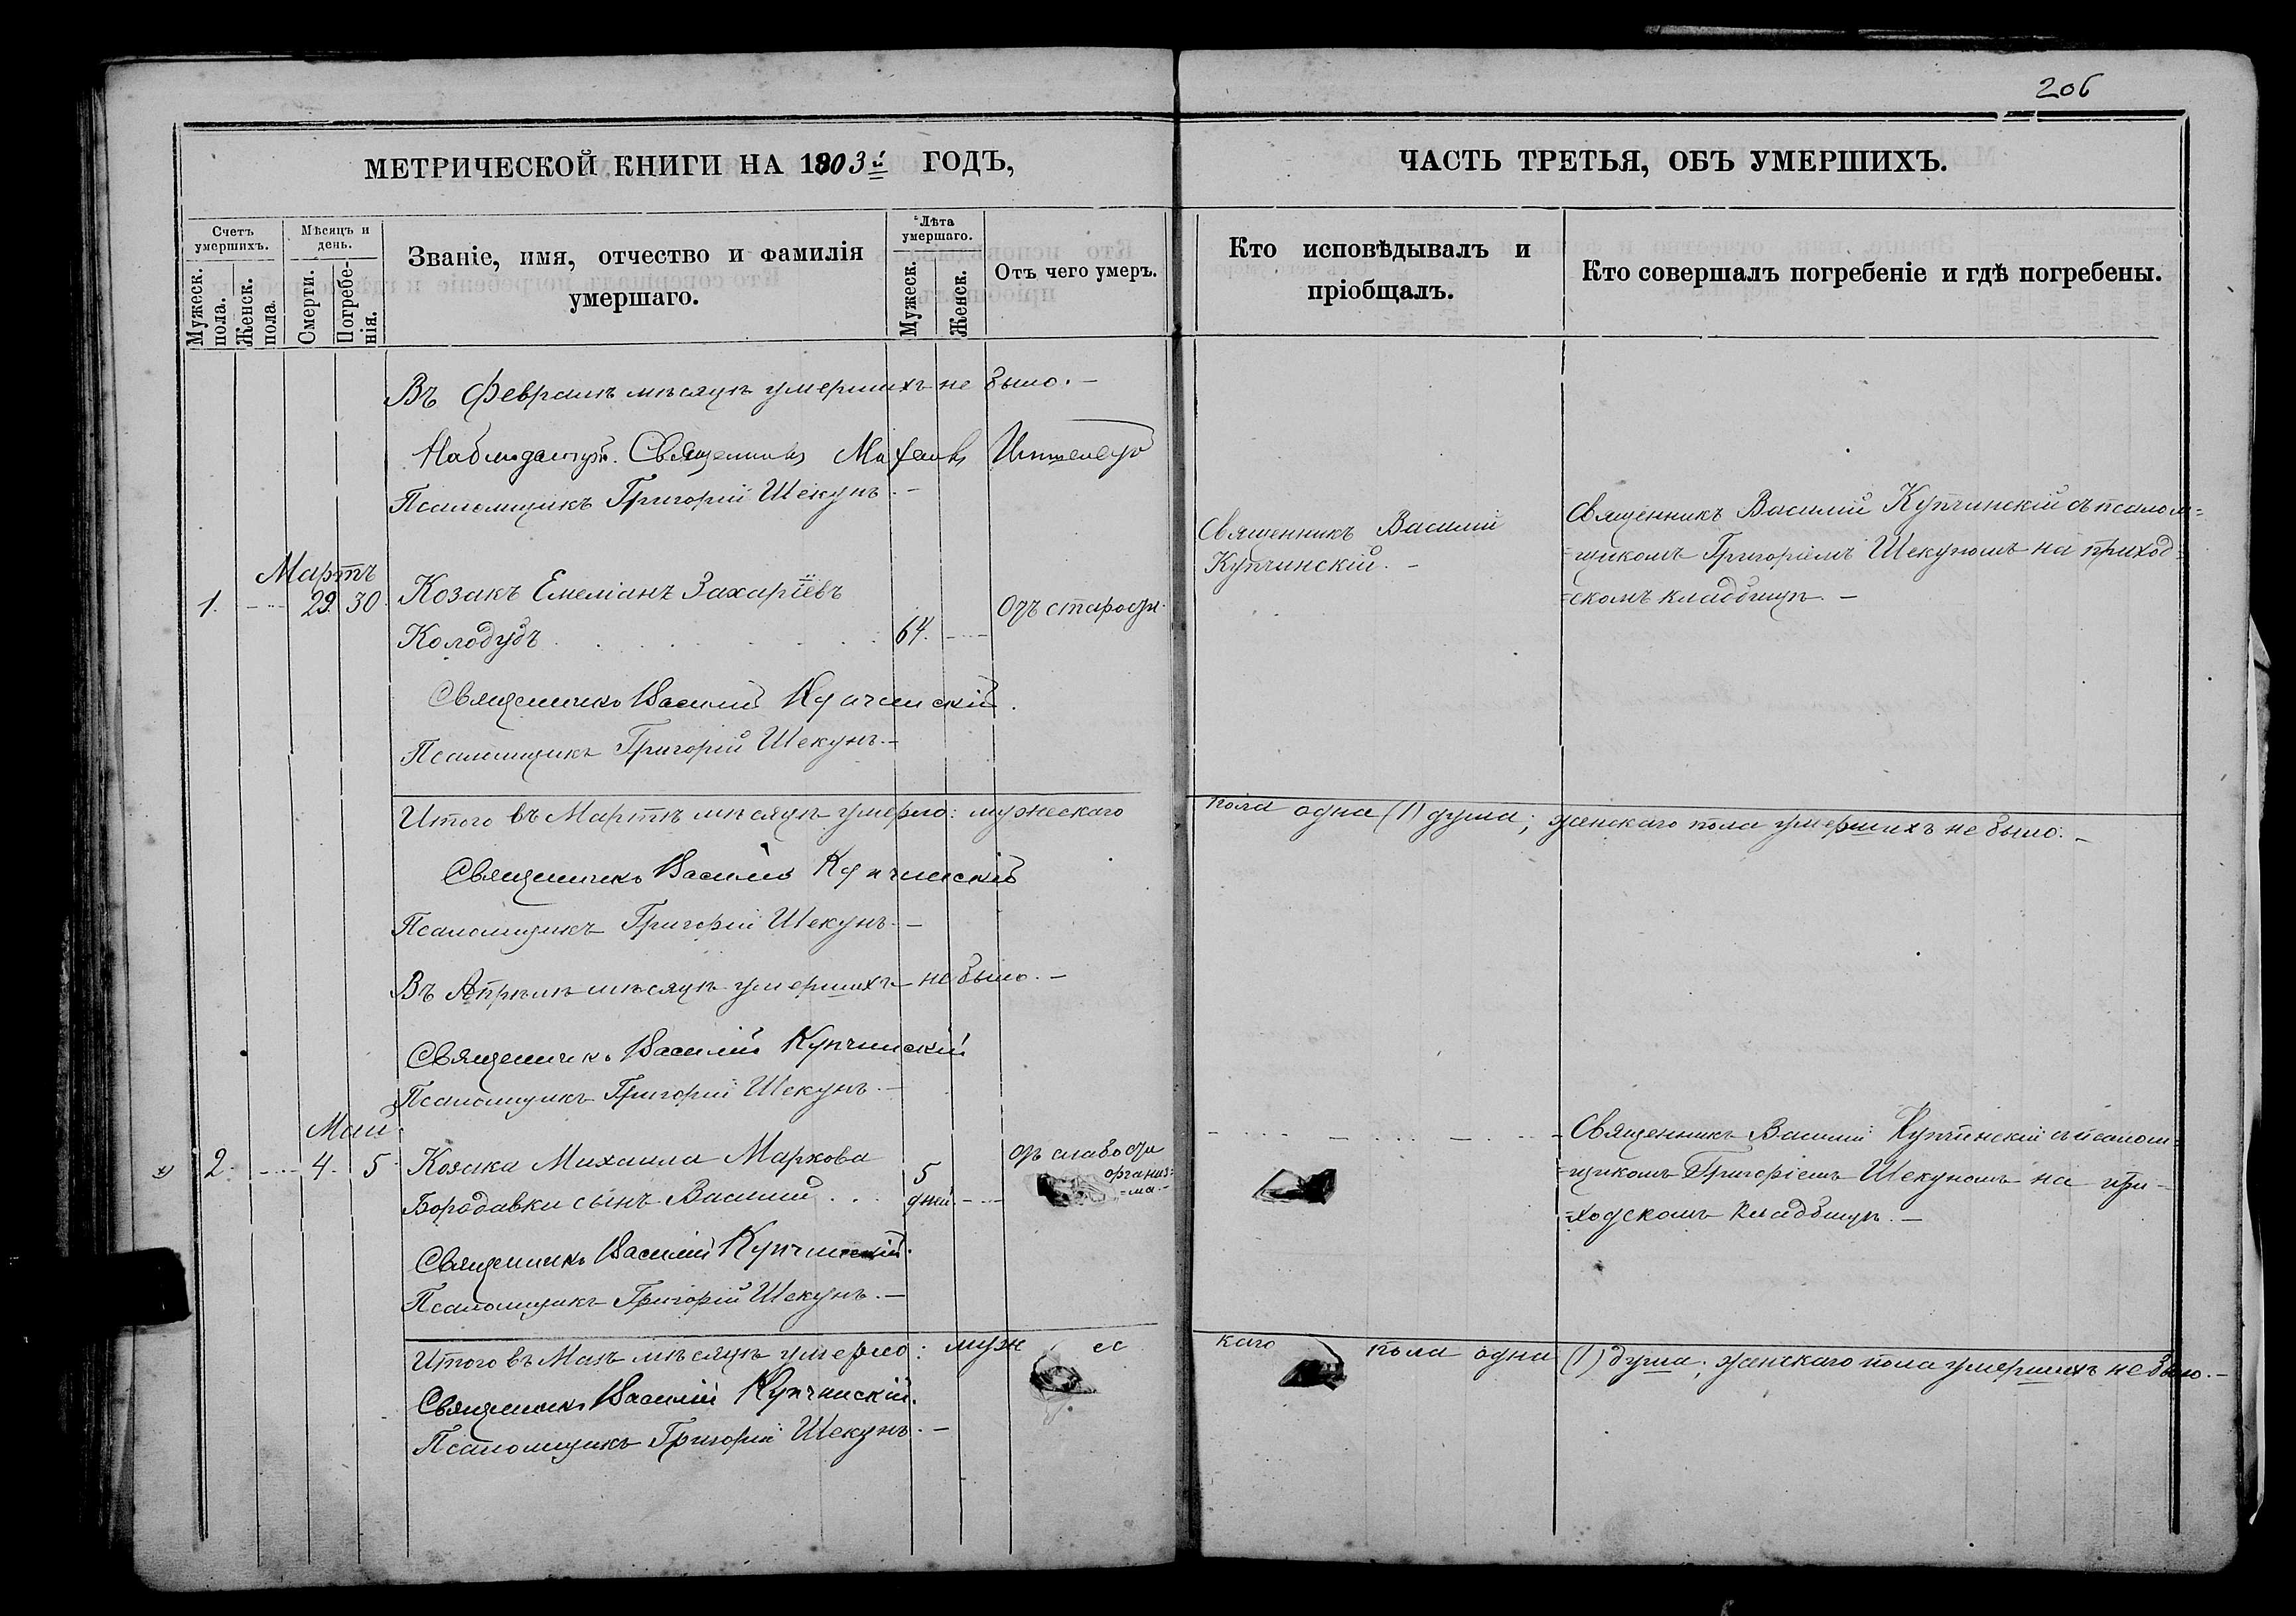 206
МЕТРИЧЕСКОЙ КНИГИ НА 1903й ГОДЪ,
ЧАСТЬ ТРЕТЬЯ, ОБЪ УМЕРШИХЪ.
Счетъ умершихъ.
Мужеск. пола.
Женск. пола
Мѣсяцъ и день.
Смерти.
Погребенія.
Званіе, имя, отчество и фамилія
умершаго.
Лѣта умершаго.
Мужеск.
Женск.
Отъ чего умеръ.
Кто исповѣдывалъ и
пріобщалъ.
Кто совершалъ погребеніе и гдѣ погребены.
Въ Февралѣ мѣсяцѣ умершихъ не было. —
Священникъ
Псаломщикъ Григорій Шекунъ. —
Мартъ
1. 29. 30. Козакъ Емеліанъ Захаріевъ
Колодубъ 64. Отъ старости.
Священникъ Василій
Купчинскій. —
Священникъ Василій Купчинскій съ псалом=
=щикомъ Григоріемъ Шекуномъ на приход=
=скомъ кладбищѣ. —
Священникъ Василій Купчинскій.
Псаломщикъ Григорій Шекунъ. —
Итого въ Мартѣ мѣсяцѣ умерло: мужескаго пола одна (1) душа; женскаго пола умершихъ не было. —
Священникъ Василій Купчинскій
Псаломщикъ Григорій Шекунъ. —
Въ Апрѣлѣ мѣсяцѣ умершихъ не было. —
Священникъ Василій Купчинскій
Псаломщикъ Григорій Шекунъ. —
Май
2. 4. 5. Козака Михаила Маркова
Бородавки сынъ Василій 5 дней.
отъ слабости
организ=
=ма. —
Священникъ Василій Купчинскій съ псалом=
=щикомъ Григоріемъ Шекуномъ на при-
=ходскомъ кладбищѣ. —
Священникъ Василій Купчинскій.
Псаломщикъ Григорій Шекунъ. —
Итого въ Маѣ мѣсяцѣ умерло: мужескаго пола одна (1) душа; женскаго пола умершихъ не было. —
Священникъ Василій Купчинскій.
Псаломщикъ Григорій Шекунъ. —